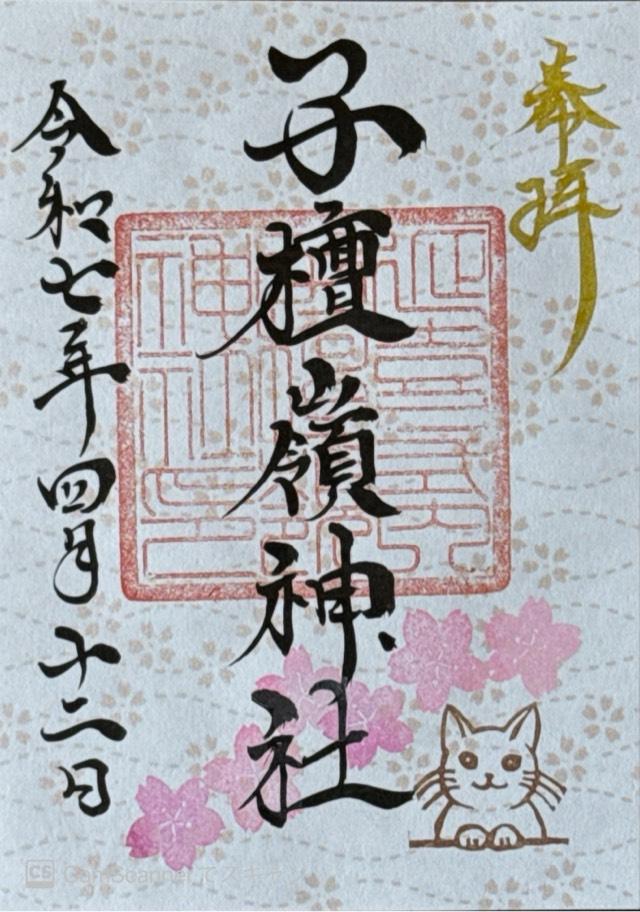 奉拝
子檀嶺神社
令和七年四月十二日
CS CamScannerでスキャン